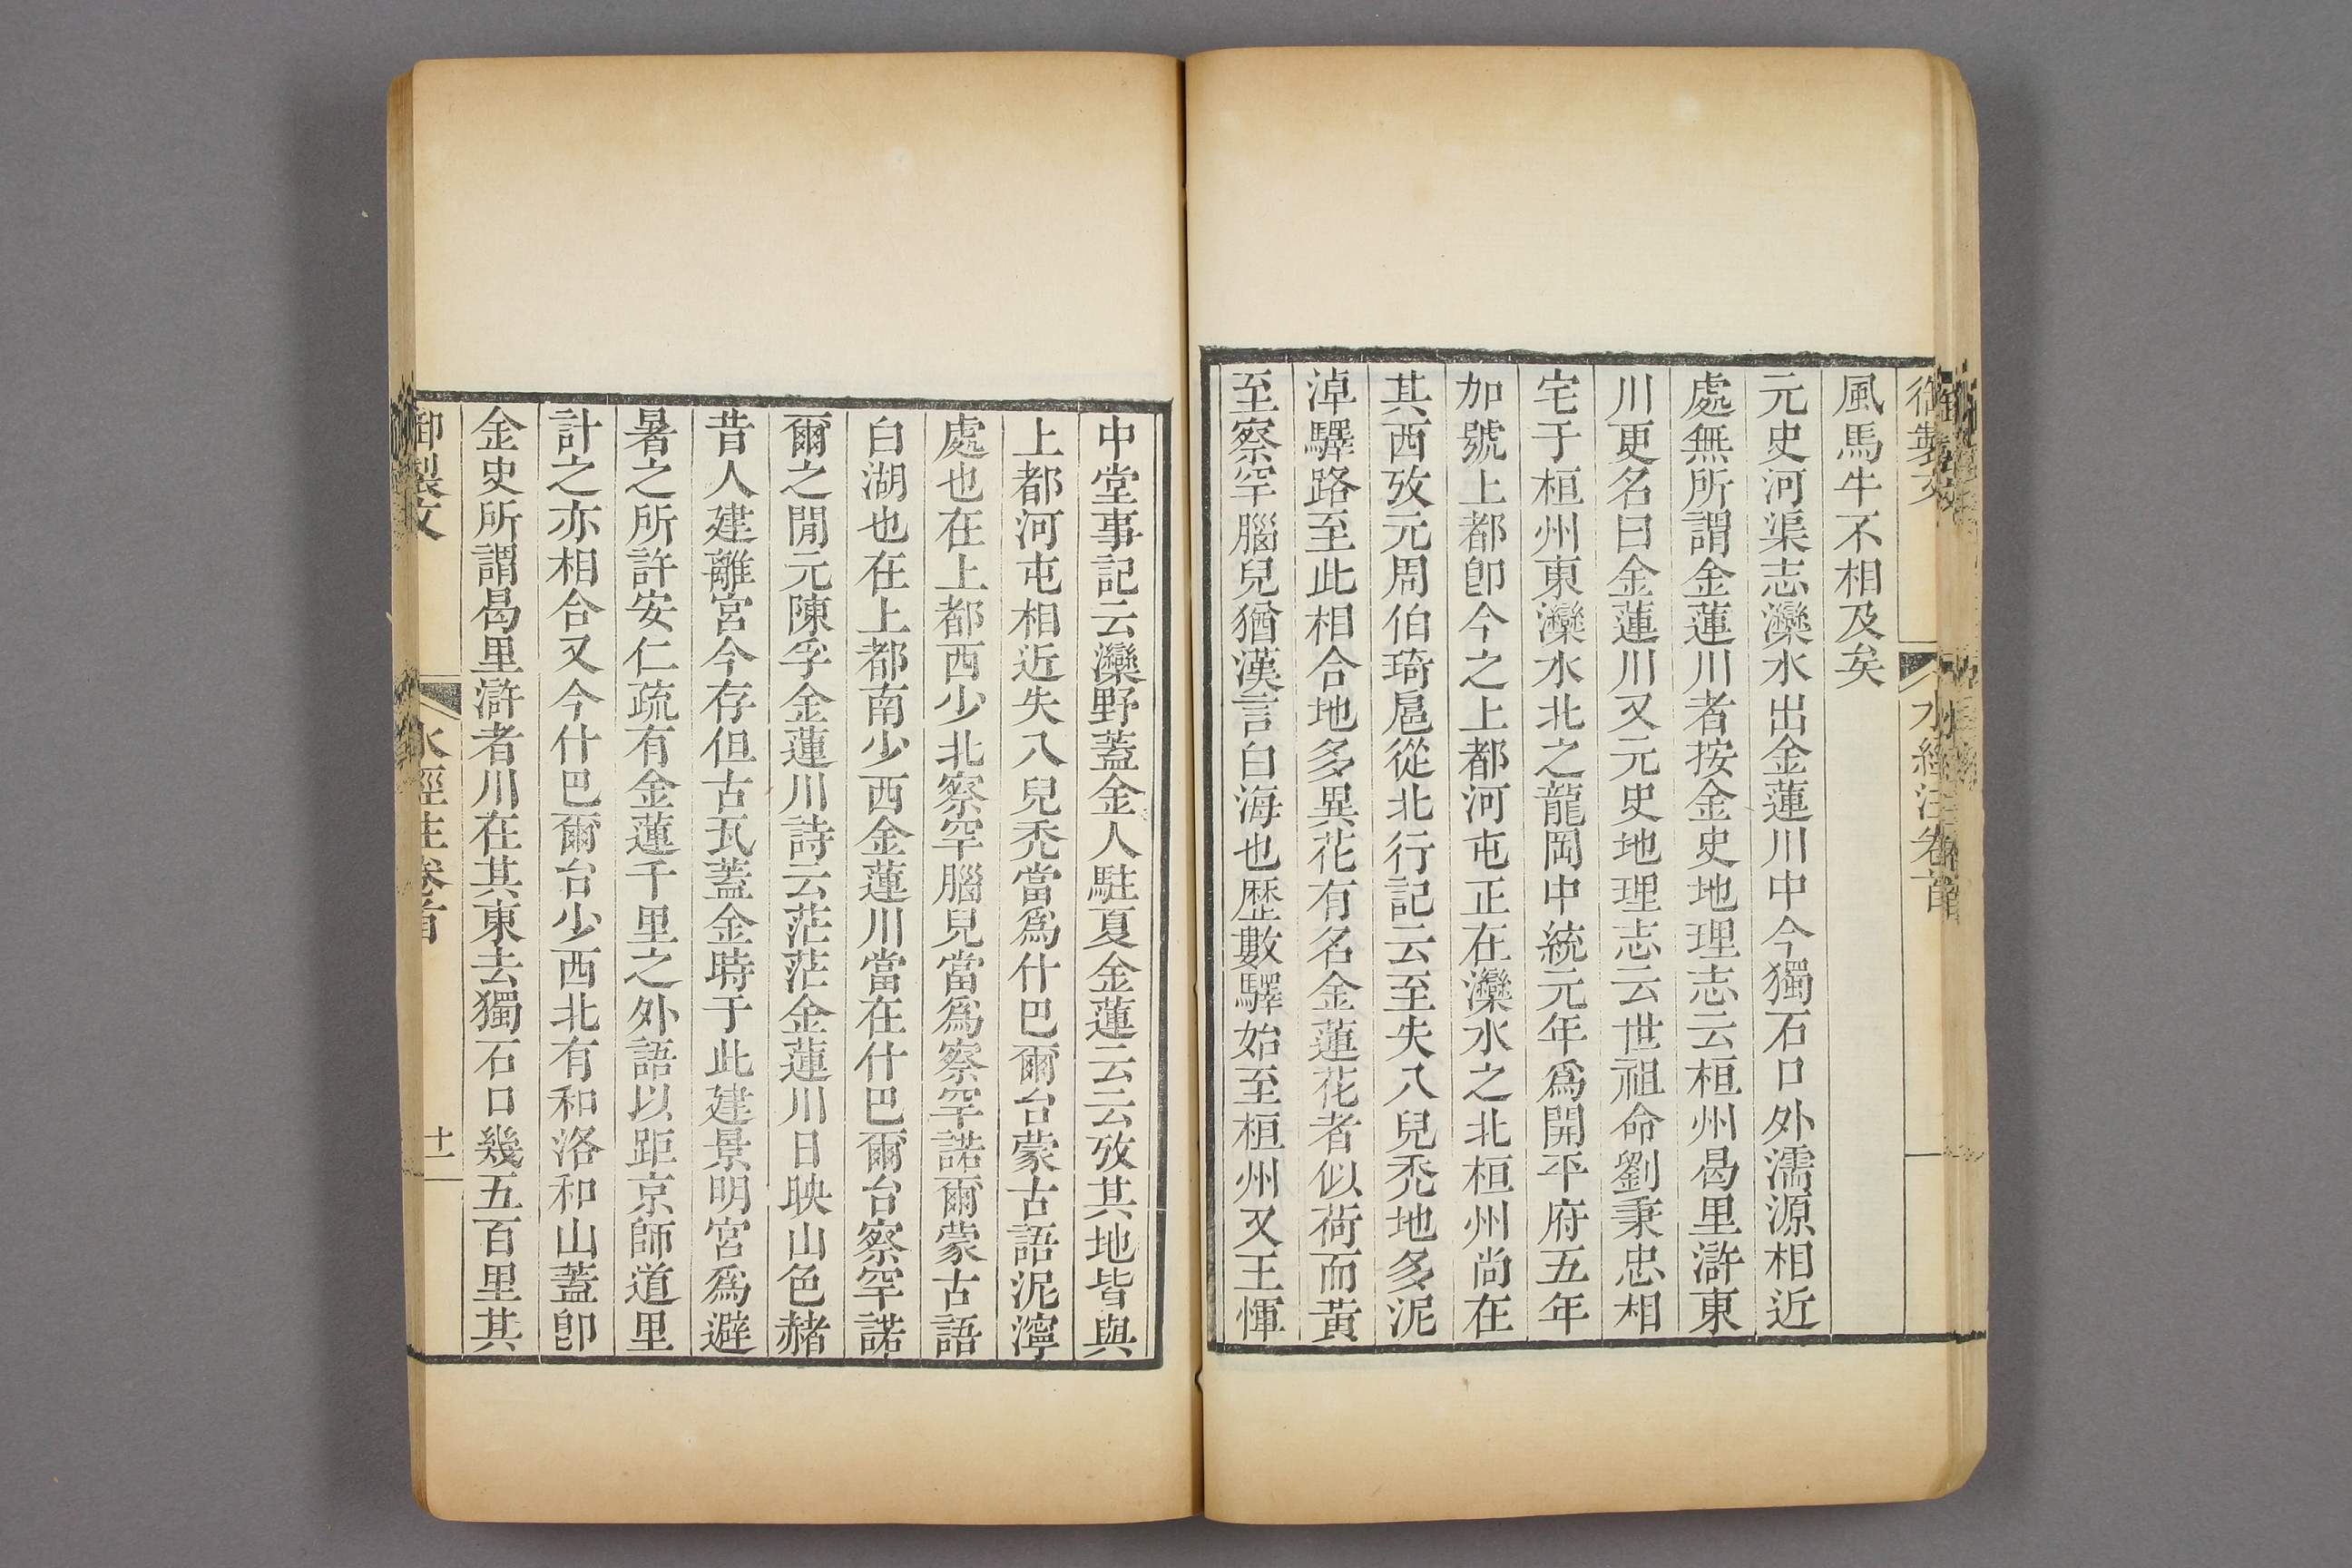 御製文 水經注卷首
風馬牛不相及矣
元史河渠志灤水出金蓮川中今獨石口外濡源相近
處無所謂金蓮川者按金史地理志云桓州曷里滸東
川更名曰金蓮川又元史地理志云世祖命劉秉忠相
宅于桓州東灤水北之龍岡中統元年爲開平府五年
加號上都卽今之上都河屯正在灤水之北桓州尚在
其西攷元周伯琦扈從北行記云至失八兒禿地多泥
淖驛路至此相合地多異花有名金蓮花者似荷而黃
至察罕腦兒猶漢言白海也歷數驛始至桓州又王惲
中堂事記云灤野蓋金人駐夏金蓮云云攷其地皆與
上都河屯相近失八兒禿當爲什巴爾台蒙古語泥濘
處也在上都西少北察罕腦兒當爲察罕諾爾蒙古語
白湖也在上都南少西金蓮川當在什巴爾台察罕諾
爾之閒元陳孚金蓮川詩云茫茫金蓮川日映山色赭
昔人建離宮今存但古瓦蓋金時于此建景明宮爲避
暑之所許安仁疏有金蓮千里之外語以距京師道里
計之亦相合又今什巴爾台少西北有和洛和山蓋卽
金史所謂曷里滸者川在其東去獨石口幾五百里其
御製文 水經注卷首 十一